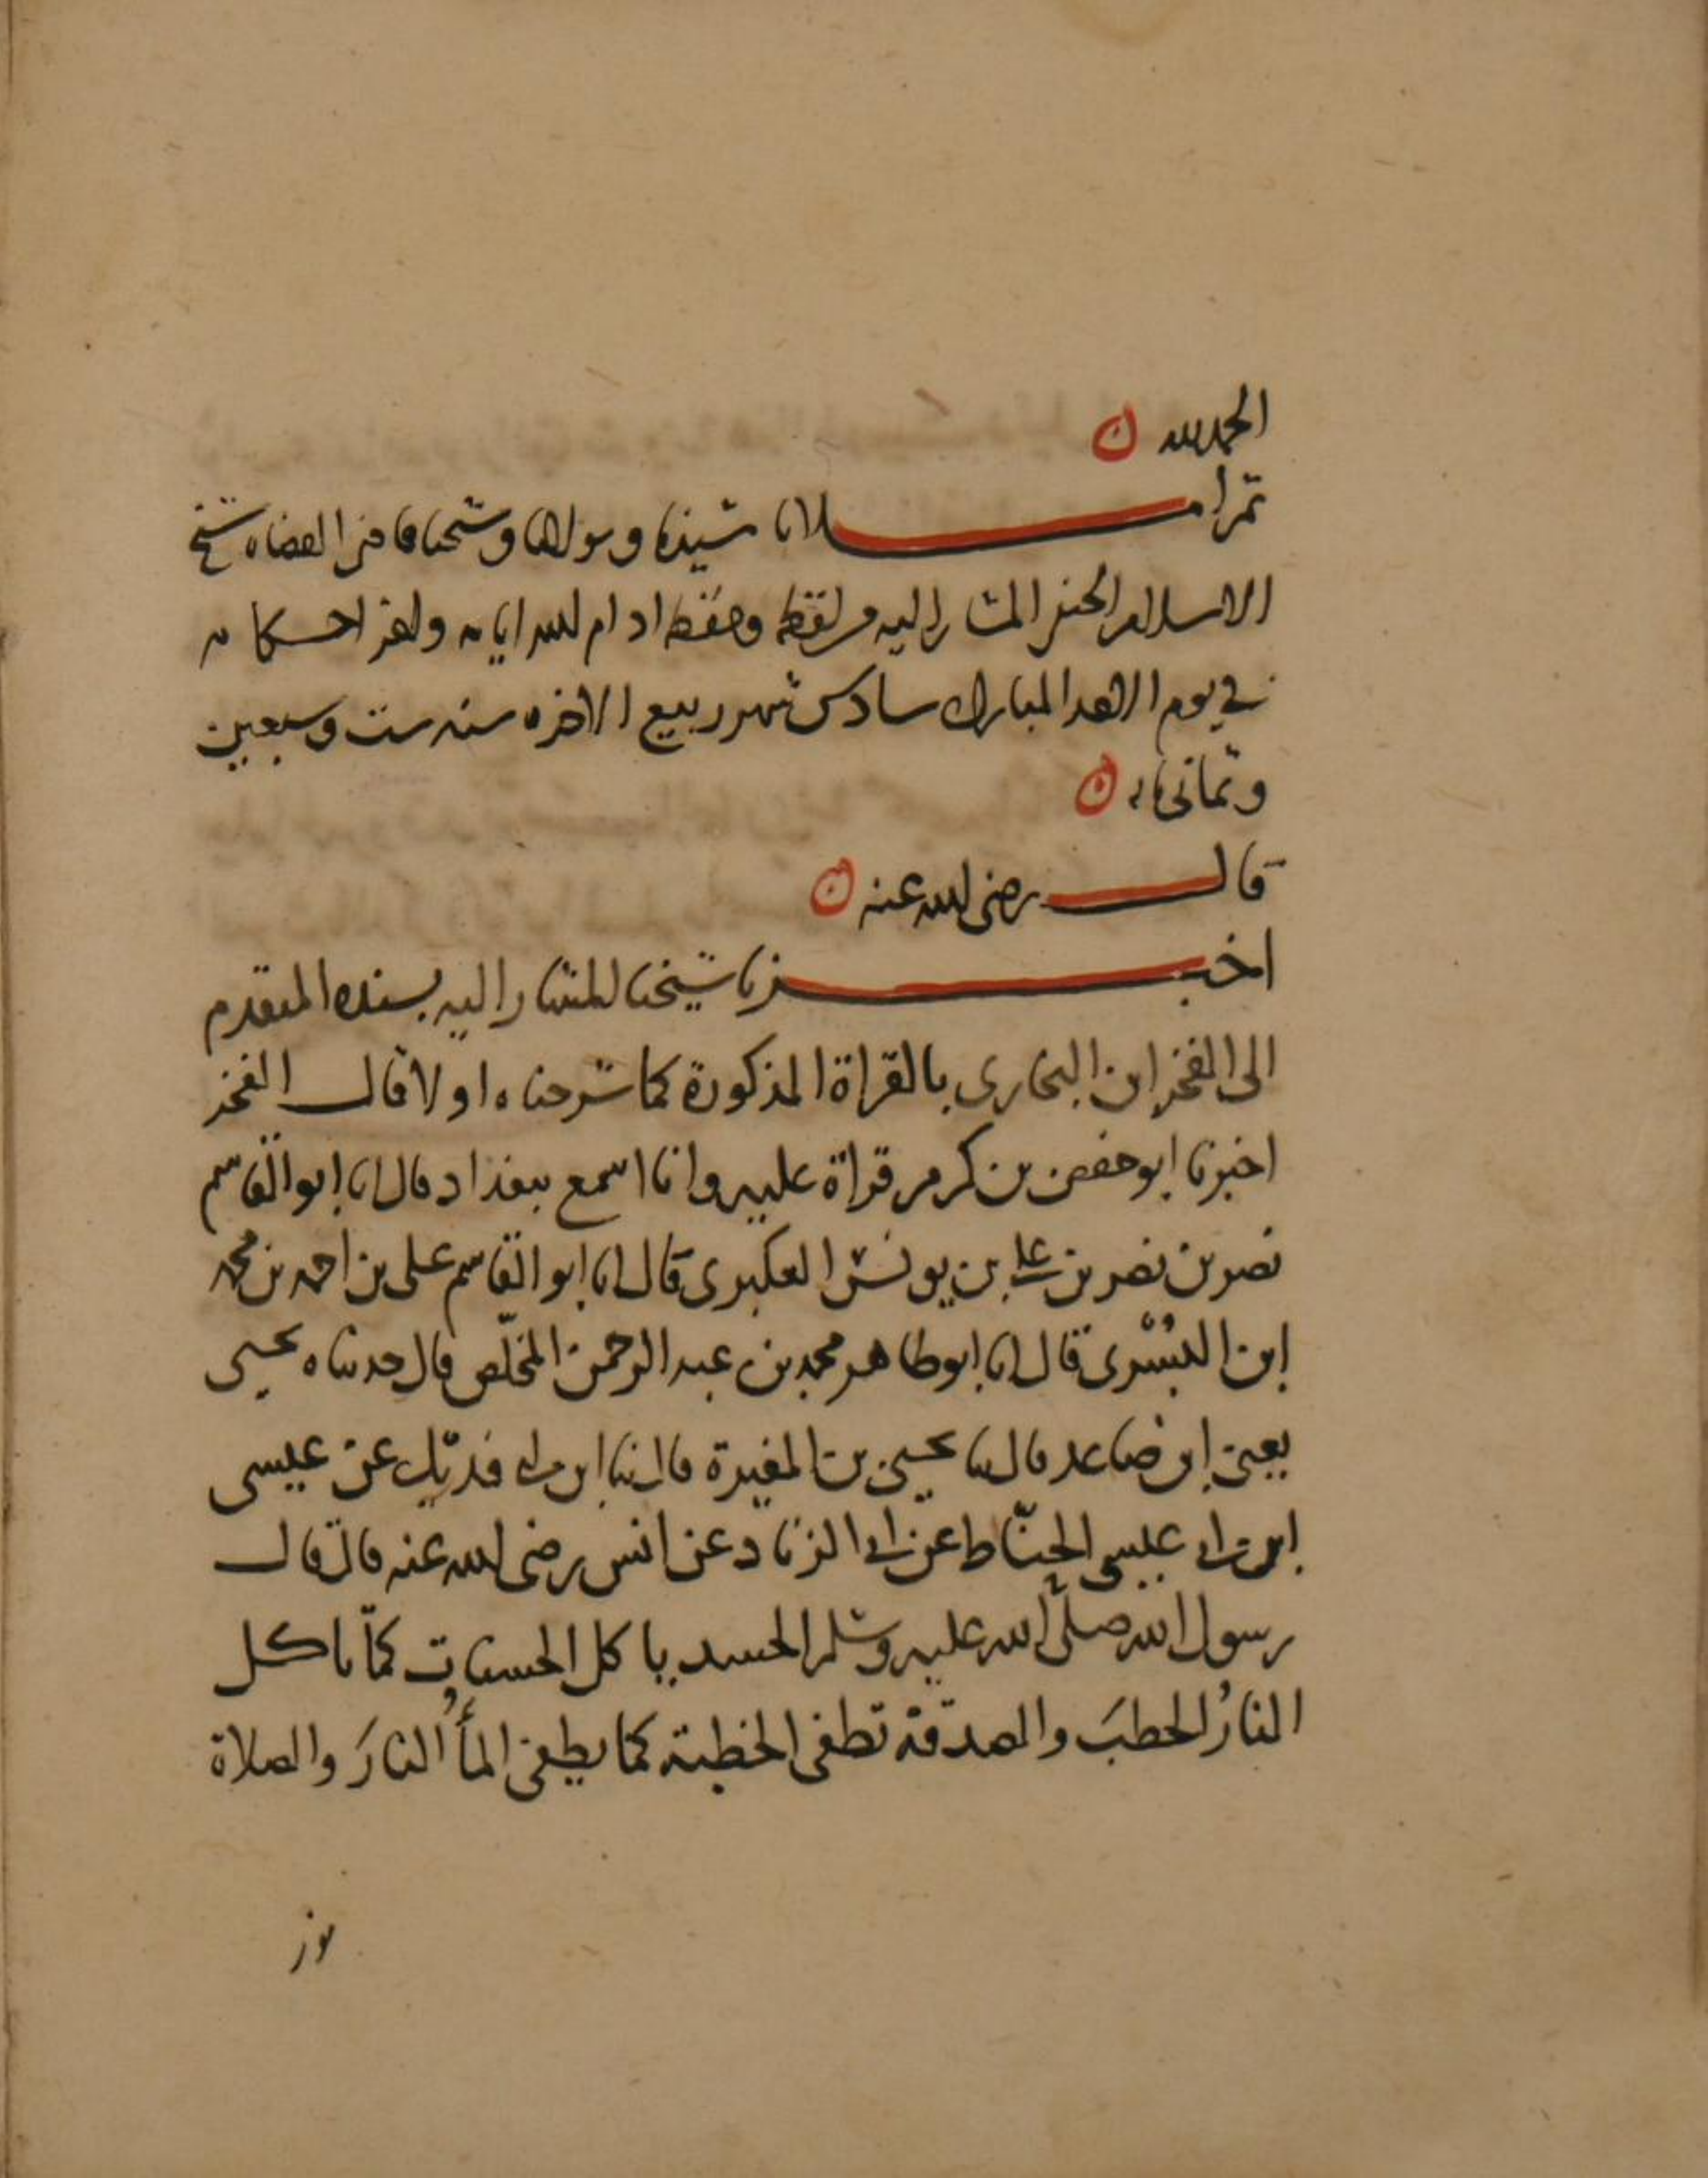 الحمد لله ن
ثم املانا سيدنا ومولانا وشيخنا قاضى القضاه شيخ
الاسلام الحنفى المشار اليه من لفظه وحفظه ادام الله ايامه واعز احكامه
في يوم الاحد المبارك سادس شهر ربيع الاخره سنه ست وسبعين
وثمانيمايه ن
قال رضى الله عنه ن
اخبرنا شيخنا المشار اليه بسنده المتقدم
الى الفخر ابن البخارى بالقراة المذكورة كما شرحناه اولا قال الفخر
اخبرنا ابو حفص بن كرم قراة عليه وانا اسمع ببغداد قال انا ابو القاسم
نصر بن نصر بن على بن يونس العكبرى قال انا ابو القاسم على بن احمد بن محمد
ابن البُسْرى قال انا ابو طاهر محمد بن عبد الرحمن المخلّص قال حدثناه يحيى
يعنى ابن صاعد قال ثنا يحيى بن المغيرة قال ثنا ابن ابى فديك عن عيسى
ابن ابى عيسى الحنّاط عن ابى الزناد عن انس رضى الله عنه قال قال
رسول الله صلى الله عليه وسلم الحسد ياكل الحسنات كما تاكل
النارُ الحطبَ والصدقة تطفى الخطية كما يطفى المأُ النارَ والصلاة
نور